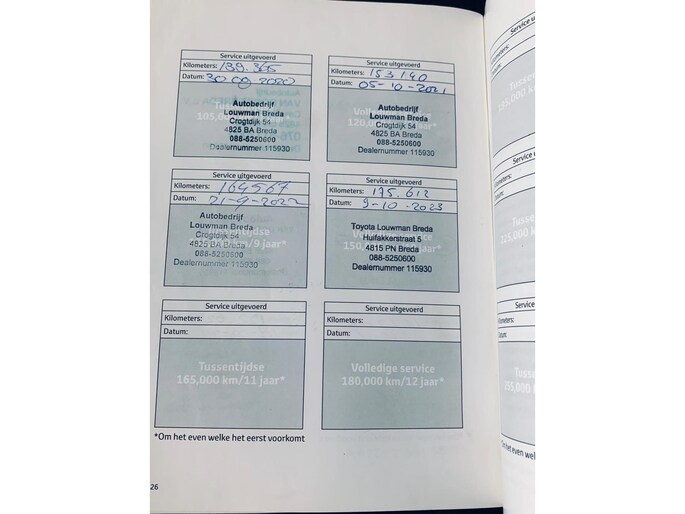 Service uitgevoerd
Kilometers: 139.365
Datum: 30 09 2020
105.000
Autobedrijf
Louwman Breda
Crogtdijk 54
4825 BA Breda
088-5250600
Dealernummer 115930
Service uitgevoerd
Kilometers: 153140
Datum: 05-10-2021
Volledige service
120,000 km/8 jaar*
Autobedrijf
Louwman Breda
Crogtdijk 54
4825 BA Breda
088-5250600
Dealernummer 115930
Service uitgevoerd
Kilometers: 164567
Datum: 21-9-2022
Tussentijdse
km/9 jaar*
Autobedrijf
Louwman Breda
Crogtdijk 54
4825 BA Breda
088-5250600
Dealernummer 115930
Service uitgevoerd
Kilometers: 175.612
Datum: 9-10-2023
Toyota Louwman Breda
Huifakkerstraat 5
4815 PN Breda
088-5250600
Dealernummer 115930
Service uitgevoerd
Kilometers:
Datum:
Tussentijdse
165,000 km/11 jaar*
Service uitgevoerd
Kilometers:
Datum:
Volledige service
180,000 km/12 jaar*
*Om het even welke het eerst voorkomt
26
Kilometers:
Datum:
Tussen
195,000 km
Kilometers:
Datum:
Tussen
225,000 km
Kilometers:
Datum:
Tussen
255,000 km
*Om het even welk